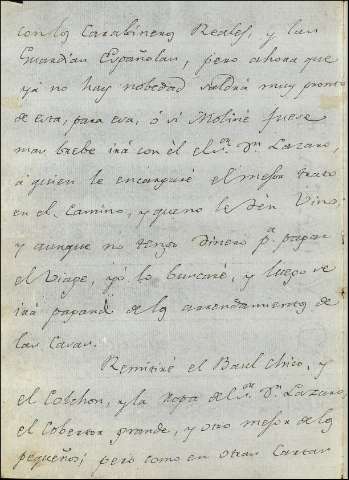 con los Carabineros Reales, y las
Guardias Españolas, pero ahora que
yá no hay nobedad saldrá muy pronto
de esta, para esa, ó si Moliné fuese
mas brebe irá con él el Sr. Dn. Lazaro,
á quien le encargaré el mejor trato
en el Camino, y que no le dén Vino;
y aunque no tengo dinero pa. pagar
el Viage, yó lo buscaré, y luego se
irá pagand de los arrendamientos de
las Casas.
Remitiré el Baul chico, y
el Colchon, y la Ropa del Sr. Dn. Lazaro,
el Cobertor grande, y otro mejor de los
pequeños; pero como en otras Cartas